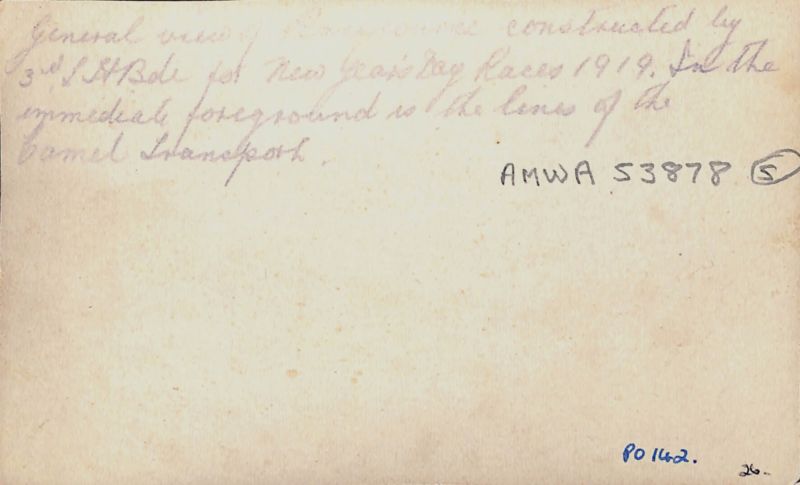 General view of constructed by
3rd L H Bde for New Year's Day Races 1919. In the
immediate foreground is the lines of the
Camel Transport.
AMWA 53878 5
PO 142.
26.